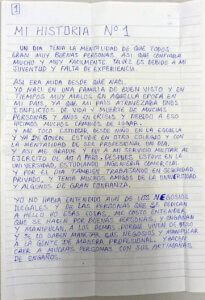 1
MI HISTORIA Nº 1
UN DIA TENIA LA MENTALIDAD DE QUE TODOS
ERAN MUY BUENAS PERSONAS, ASI QUE CONFIABA
MUCHO Y MUY FACILMENTE TALVEZ ES DEBIDO A MI
JUVENTUD Y FALTA DE EXPERIENCIA.
ASI ERA MIDA DESDE QUE NACI
YO NACI EN UNA FAMILIA DE BUEN VISTO Y EN
TIEMPOS MUY MALOS EN AQUELLA EPOCA EN
MI PAIS, YA QUE MI PAIS ATRAVEZABA UNOS
CONFLICTOS DE VIDA Y MUERTE DE MUCHAS
PERSONAS Y AÑOS EN CRISIS, Y DEBIDO A ESO
FUIMOS MUCHOS CAMBIOS DE LUGAR.
Y ME TOCO ESTUDIAR DESDE NIÑO EN LA ESCUELA
Y YA DE JOVEN ESTUDIE EN OTRO COLEGIO Y CON
LA MENTALIDAD DE SER PROFESIONAL UN DIA.
Y ASI ME GRADUE Y FUI A MI SERVICIO MILITAR AL
EJERCITO DE MI PAIS, DESPUES ESTUVE EN LA
UNIVERSIDAD, ESTUDIANDO INGENIERIA COMERCIAL.
Y POR EL DIA TAMBIEN TRABAJANDO EN SEGURIDAD
PRIVADO, Y TENIA MUCHOS AMIGOS DE LA UNIVERSIDAD
Y ALGUNOS DE GRAN CONFIANZA.
YO NO HABIA ENTENDIDO AUN DE LOS NEGOCIOS
ILEGALES Y DE LAS PERSONAS QUE SE DEDICAN
A ESAS COSAS, ME COSTO ENTENDER
QUE SE HACEN POR BUENAS PERSONAS, Y ENGAÑAN
Y MANIPULAN, A LOS DEMAS, PORQUE VIVEN DE ESO
Y SE LO SABEN MANEJAR SUS NEGOCIOS Y MANIPULAR
A LA GENTE DE MANERA PROFESIONAL, Y HACEN
CAER A MUCHAS PERSONAS CON SUS ACTIVIDADES
DE ENGAÑOS.